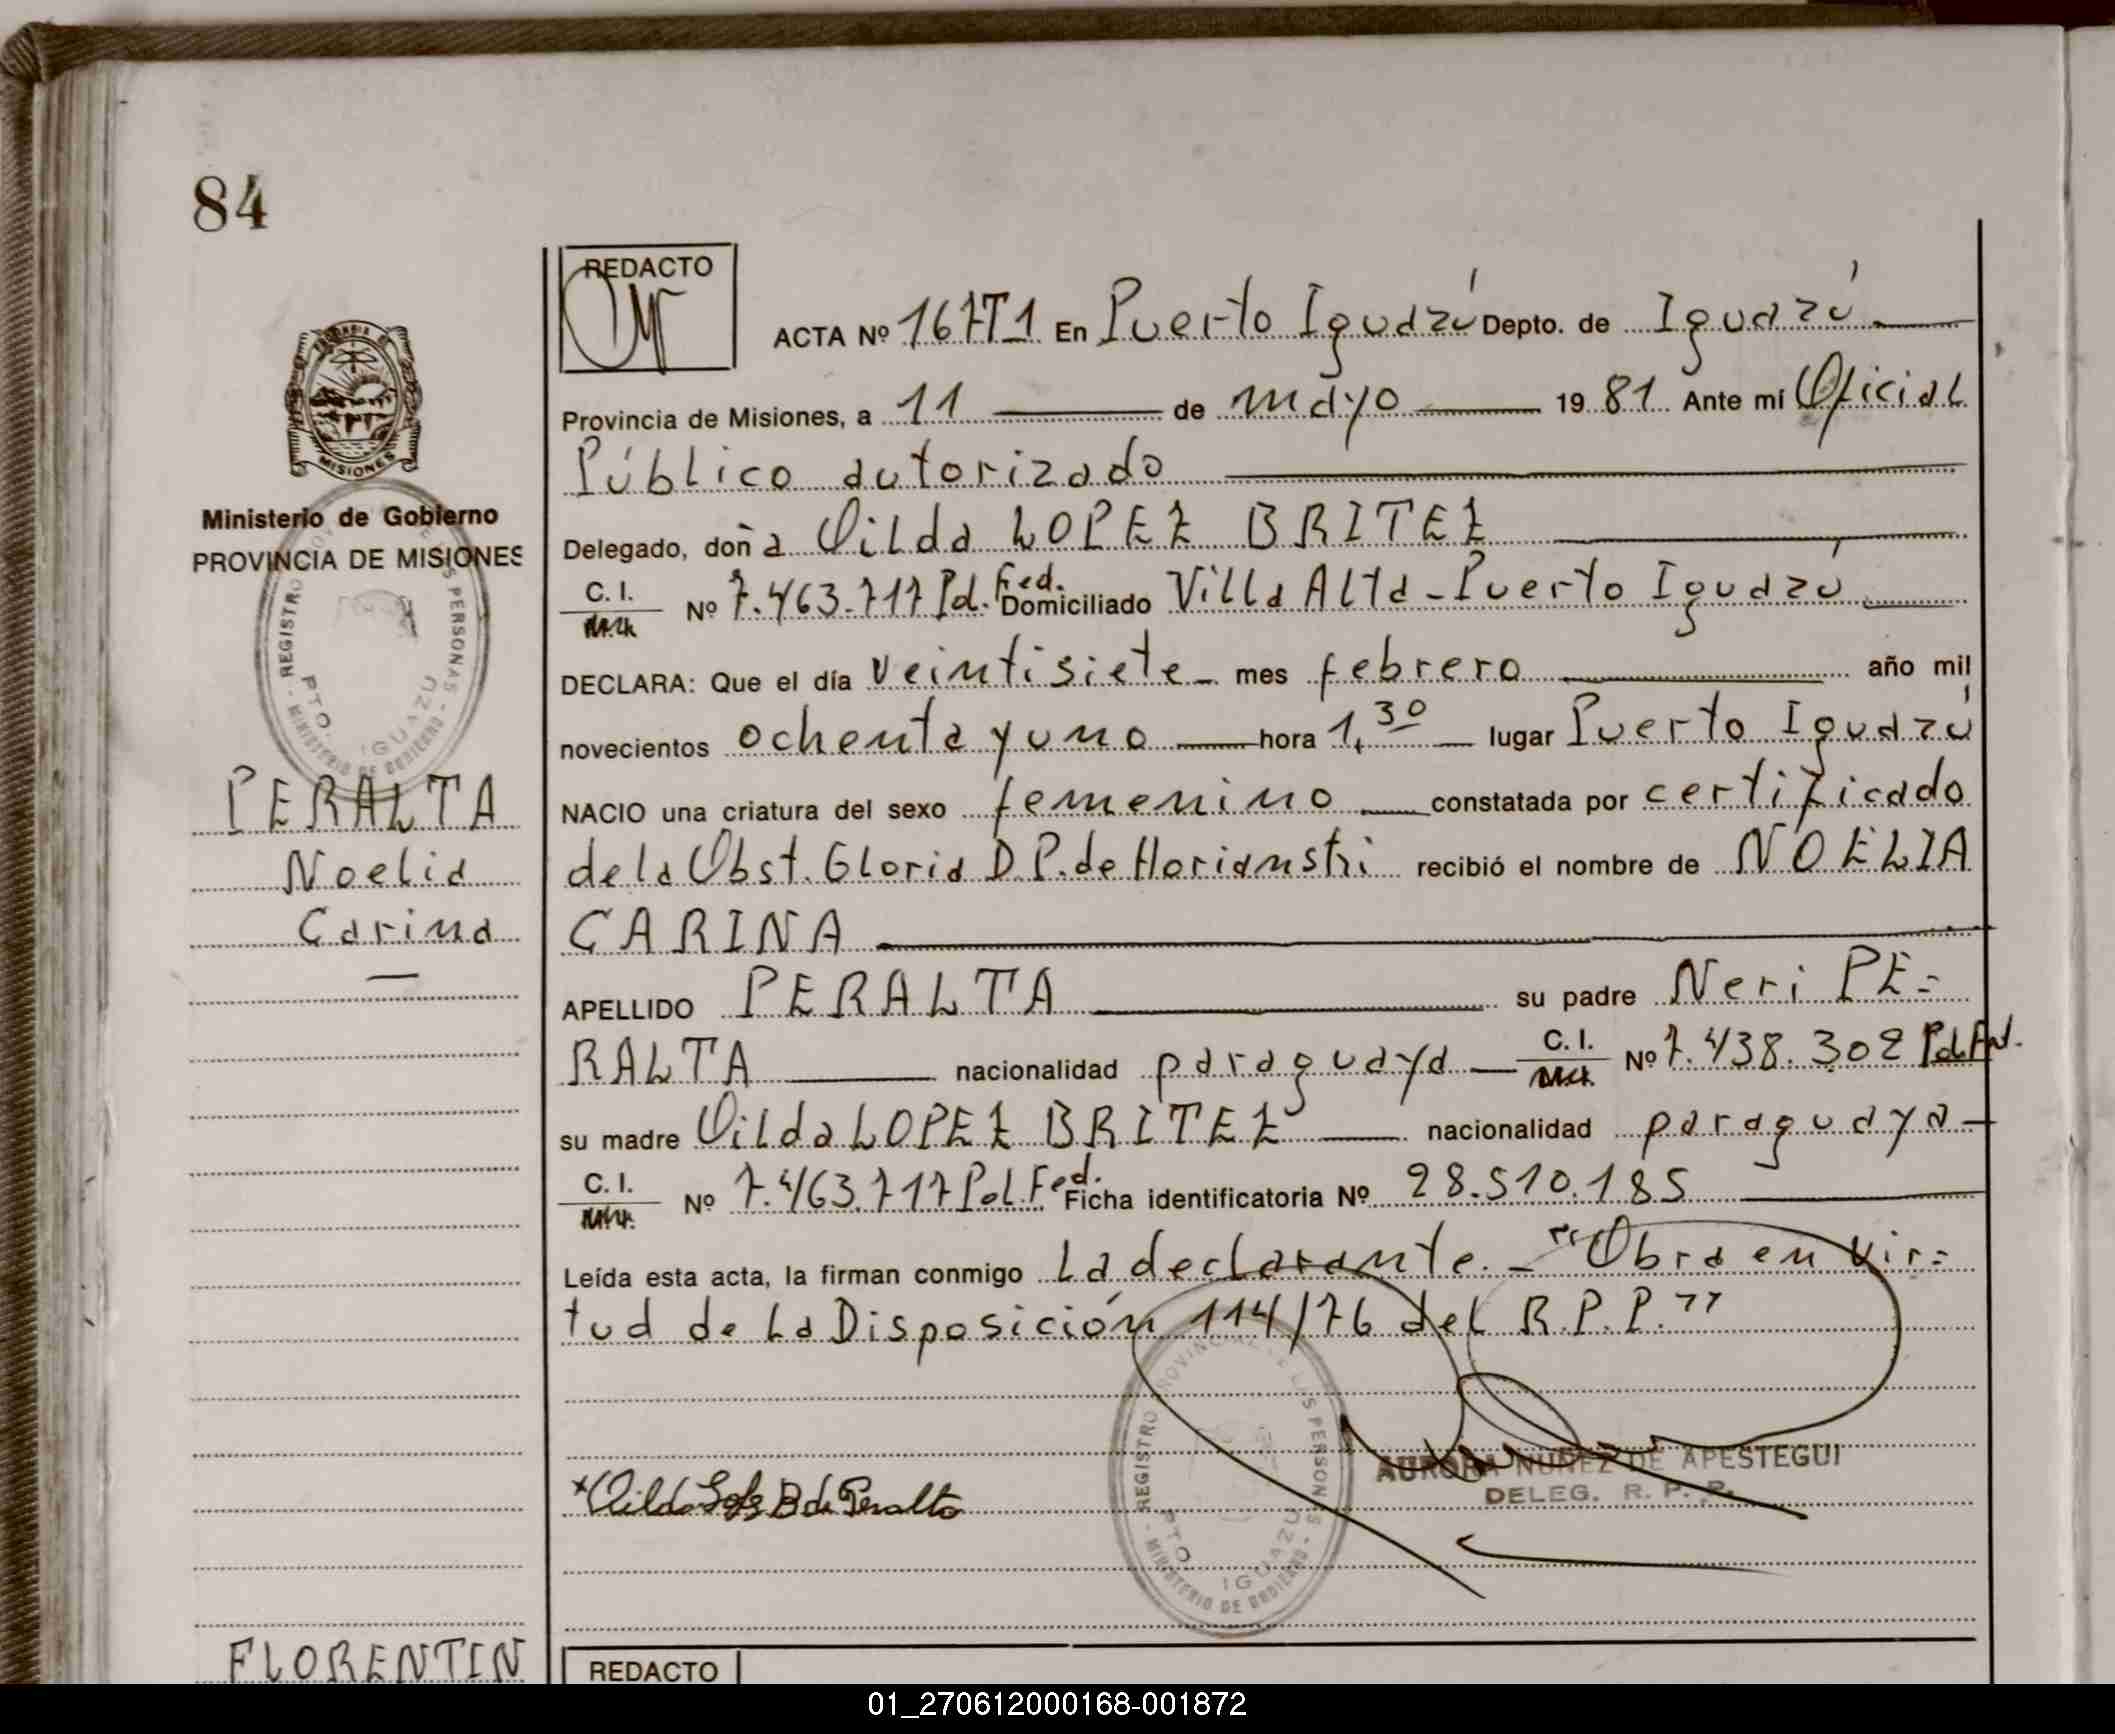 84
REDACTO
ACTA Nº 167T1 En Puerto Iguazú Depto. de Iguazú
Provincia de Misiones, a 11 de mayo 1981. Ante mí Oficial
Público autorizado
Delegado, doña Vilda LOPEZ BRITEZ
C. I. Nº 7.463.717 Pol. Fed. Domiciliado Villa Alta - Puerto Iguazú
DECLARA: Que el día veintisiete mes febrero año mil
novecientos ochenta y uno hora 1,30 lugar Puerto Iguazú
NACIO una criatura del sexo femenino constatada por certificado
de la Obst. Gloria D. P. de recibió el nombre de NOELIA
CARINA
APELLIDO PERALTA su padre Neri PE=
RALTA nacionalidad paraguaya C. I. Nº 7.438.302 Pol. Fed.
su madre Vilda LOPEZ BRITEZ nacionalidad paraguaya
C. I. Nº 7.463.717 Pol. Fed. Ficha identificatoria Nº 28.510.185
Leída esta acta, la firman conmigo La declarante. - "Obra en vir=
tud de La Disposición 114/76 del R. P. P."
AURORA NUÑEZ DE APESTEGUI
DELEG. R. P. P.
Vilda B de Peralta
REGISTRO PROVINCIAL DE LAS PERSONAS - MINISTERIO DE GOBIERNO
PTO. IGUAZU
REDACTO
MISIONES
Ministerio de Gobierno
PROVINCIA DE MISIONES
REGISTRO PROVINCIAL DE LAS PERSONAS - MINISTERIO DE GOBIERNO
PTO. IGUAZU
PERALTA
Noelia
Carina
FLORENTIN
01_270612000168-001872